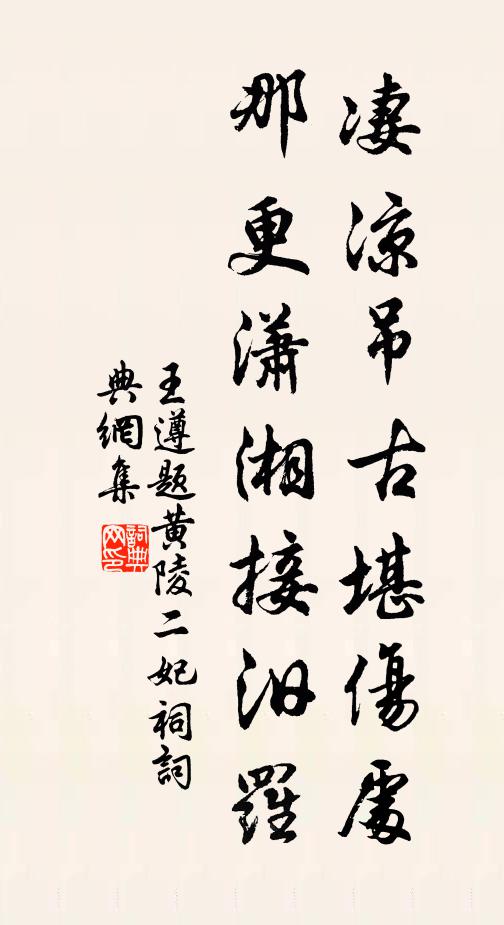 凄涼吊古堪傷處
那更瀟湘接汨羅
王遵題黄陵二妃祠詞
典網集
詞典網印